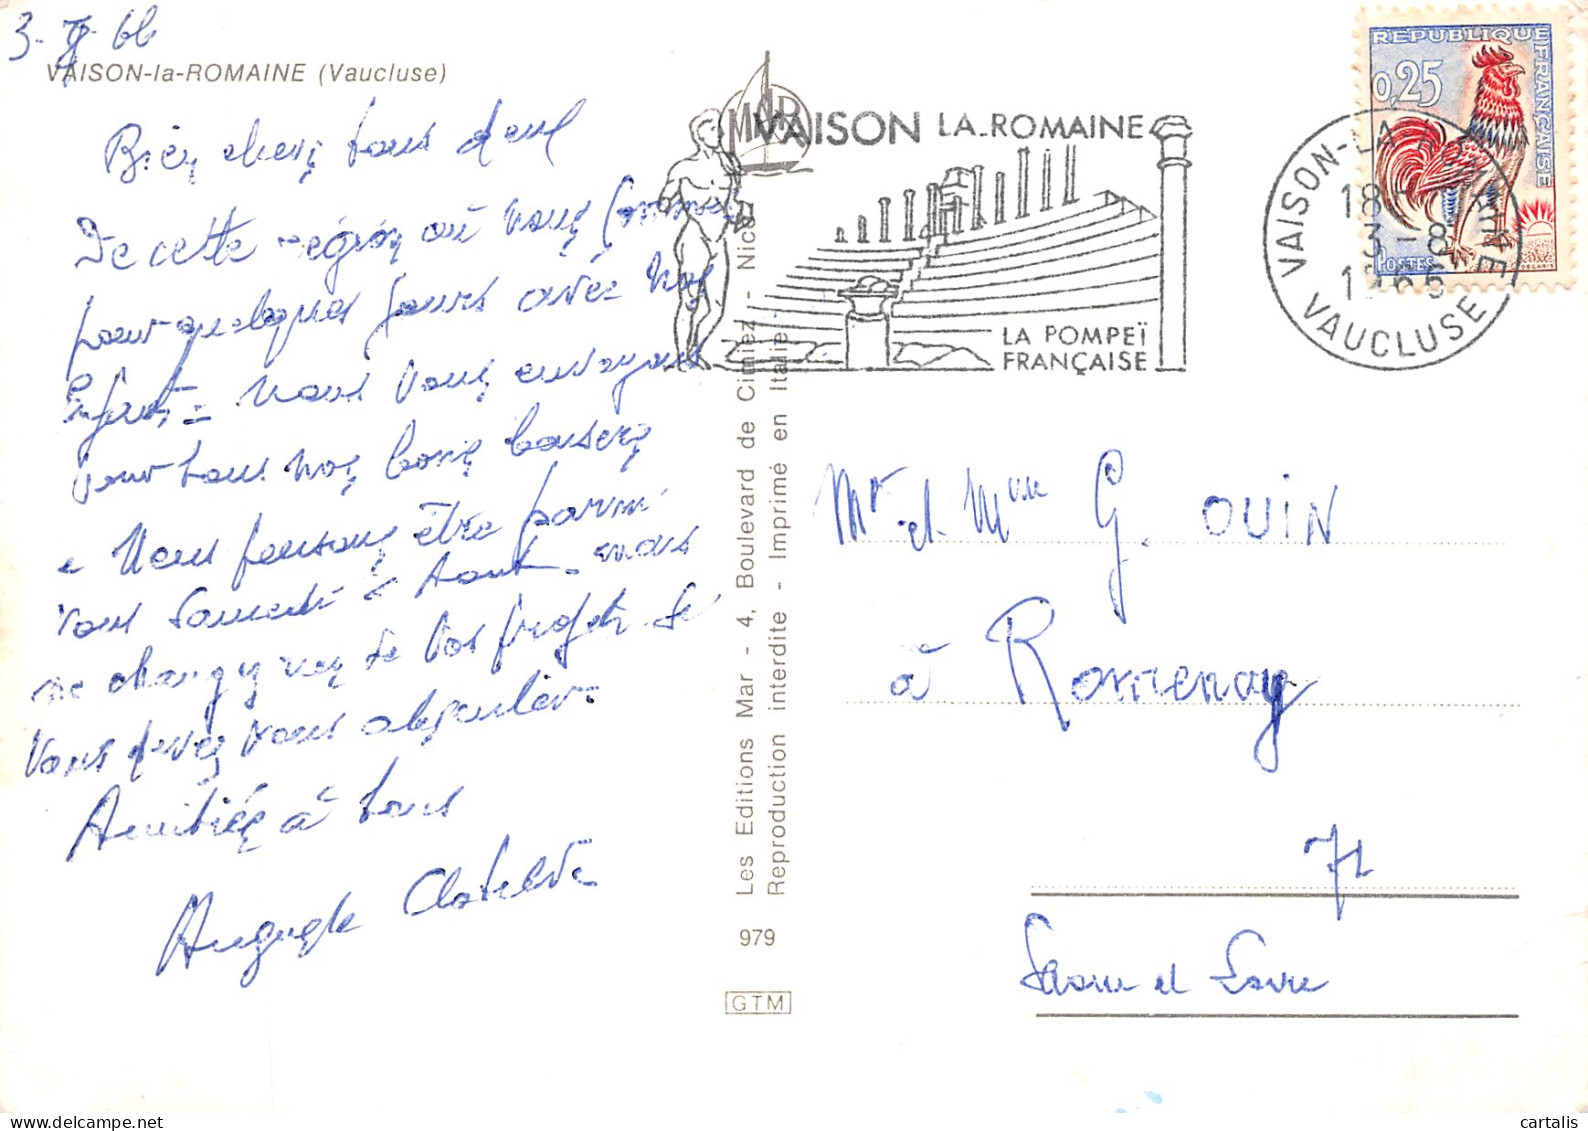 3-8-66
VAISON-la-ROMAINE (Vaucluse)
Bien chers tous deux
De cette région où nous sommes
pour quelques jours avec nos
Enfants = nous vous envoyons
pour tous nos bons baisers
= Nous pensons être parmi
vous Samedi 6 Août - mais
ne changez rien de vos projets si
vous devez vous absenter.
Amitiés à tous
Auguste Clotilde
Les Editions Mar - 4, Boulevard de Cimiez - Nice
Reproduction interdite - Imprimé en Italie
979
GTM
MAR
VAISON LA-ROMAINE
LA POMPEÏ
FRANÇAISE
VAISON-LA-ROMAINE
18
3-8
1966
VAUCLUSE
REPUBLIQUE FRANÇAISE
0,25
POSTES
DECARIS
Mr et Mme G. OUIN
à Romenay
71
Saone et Loire
cartalis
delcampe.net